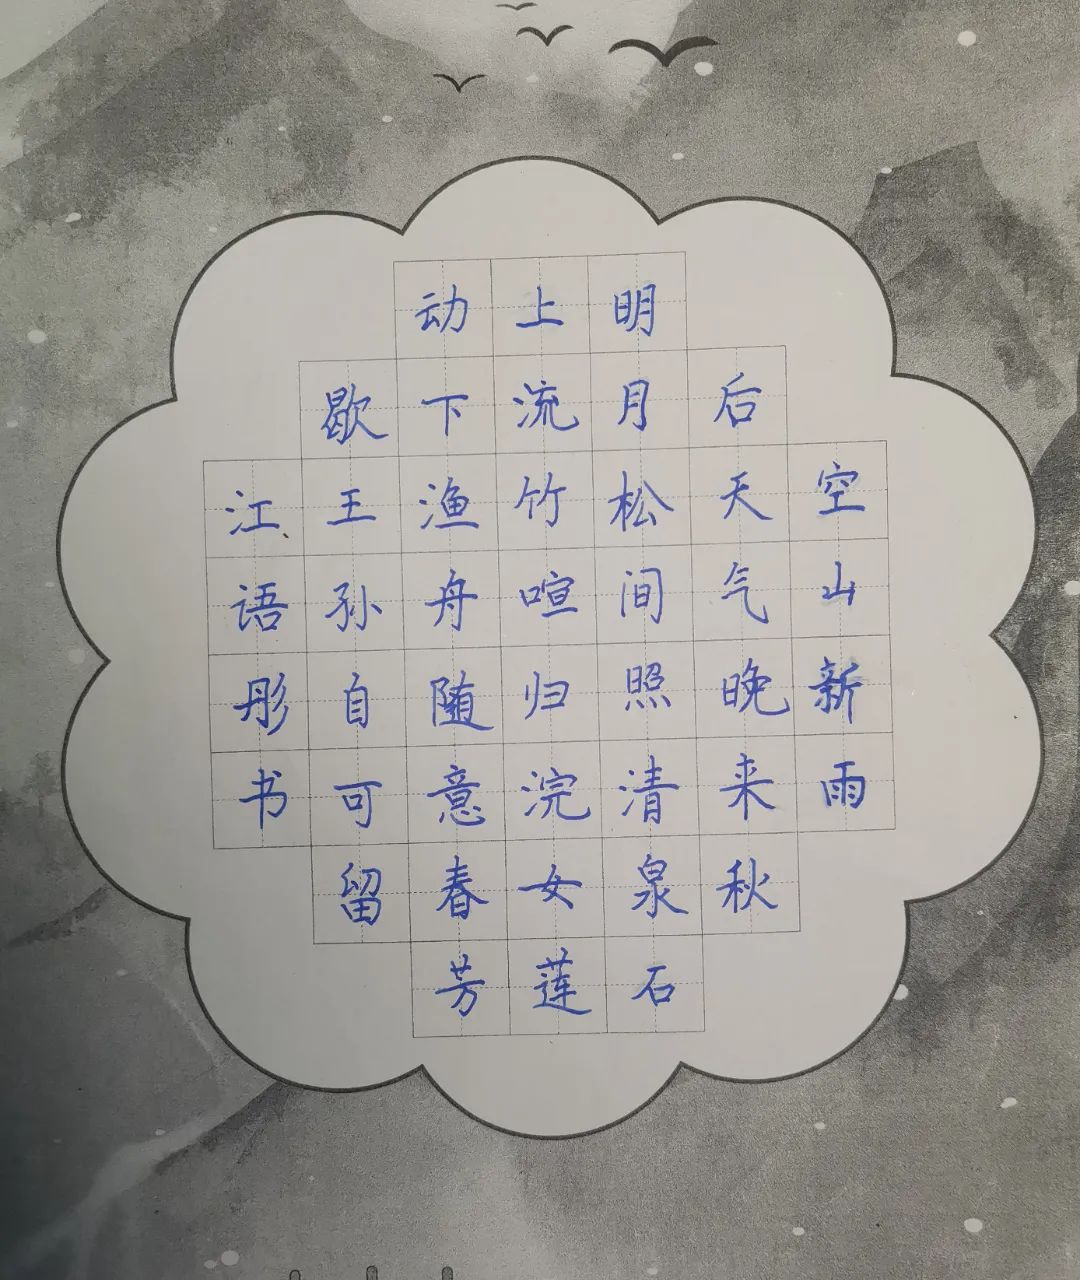 空山新雨
后天气晚来秋
明月松间照清泉石
上流竹喧归浣女莲
动下渔舟随意春芳
歇王孙自可留
江语彤书